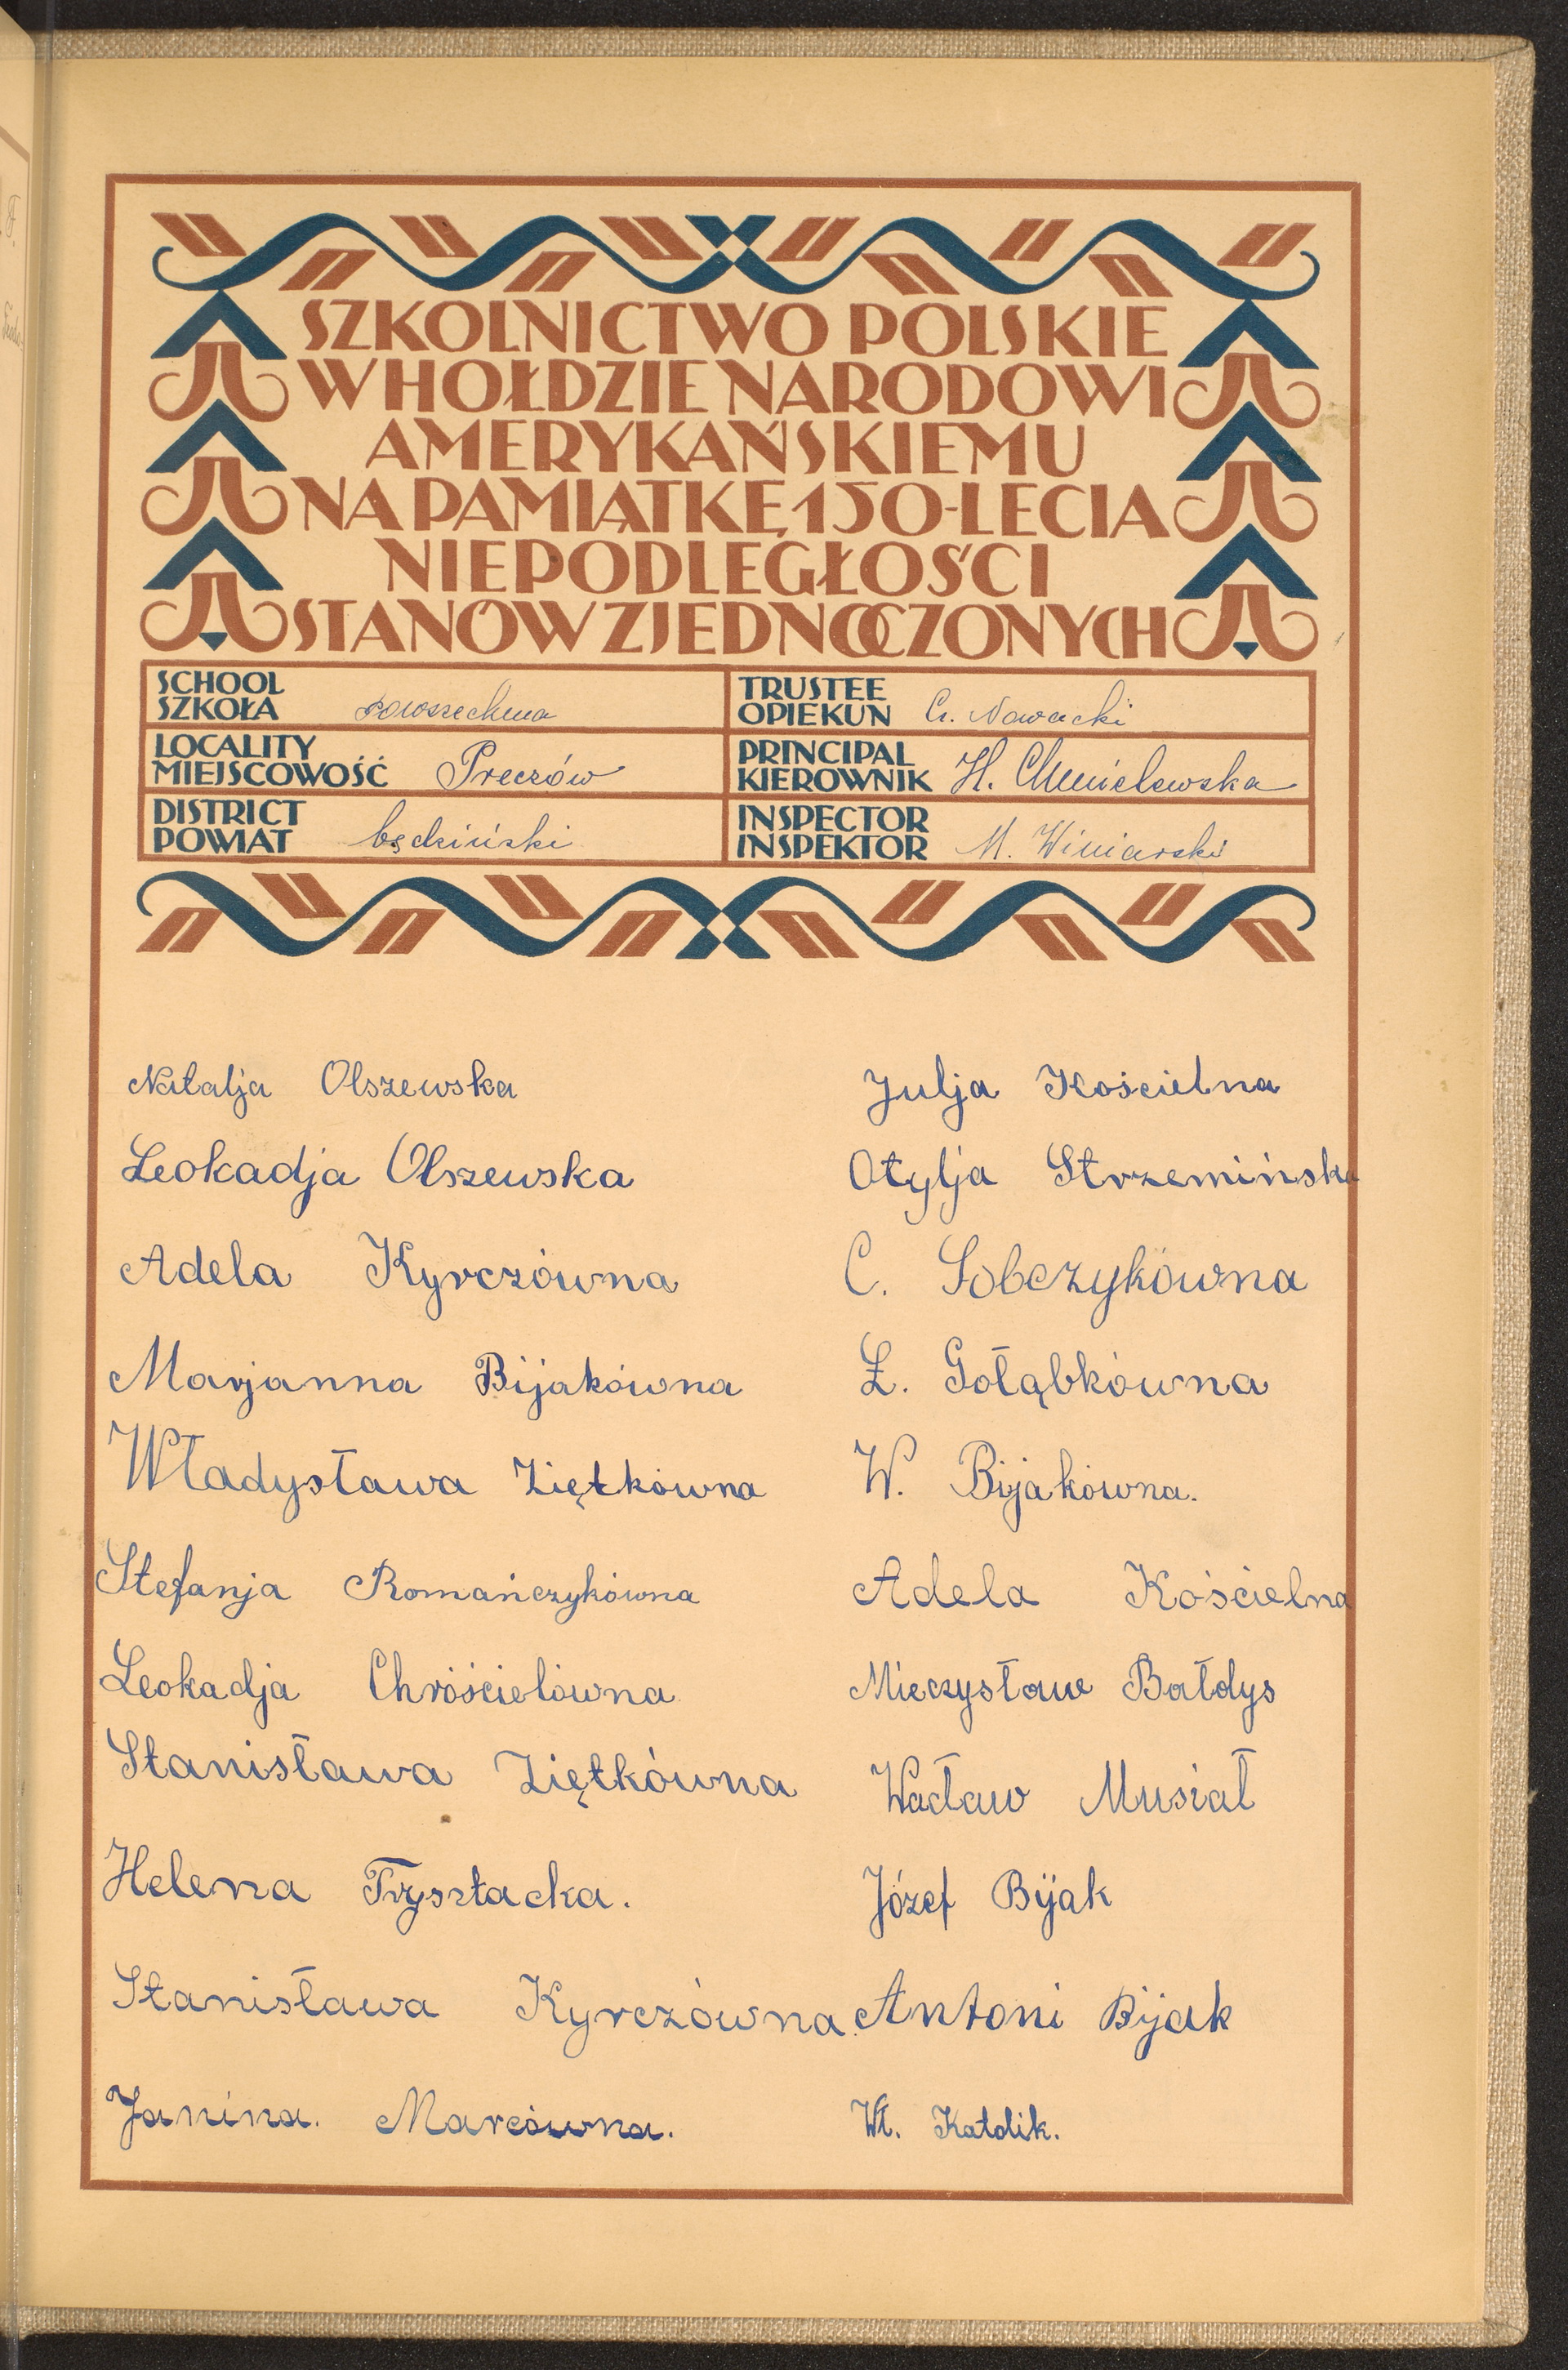 SZKOLNICTWO POLSKIE
W HOŁDZIE NARODOWI
AMERYKAŃSKIEMU
NA PAMIĄTKĘ 150-LECIA
NIEPODLEGŁOŚCI
STANÓW ZJEDNOCZONYCH
SCHOOL
SZKOŁA powszechna
TRUSTEE
OPIEKUN Cz. Nowacki
LOCALITY
MIEJSCOWOŚĆ Preczów
PRINCIPAL
KIEROWNIK H. Chmielewska
DISTRICT
POWIAT będziński
INSPECTOR
INSPEKTOR M. Winiarski
Natalja Olszewska
Leokadja Olszewska
Adela Kyrczówna
Marjanna Bijakówna
Władysława Ziętkówna
Stefanja Romańczykówna
Leokadja Chróścielówna
Stanisława Ziętkówna
Helena Trysztacka.
Stanisława Kyrczówna.
Janina. Marcówna.
Julja Kościelna
Otylja Strzemińska
C. Sobczykówna
Ł. Gołąbkówna
W. Bijakówna.
Adela Kościelna
Mieczysław Bałdys
Wacław Musiał
Józef Bijak
Antoni Bijak
Wł. Katolik.